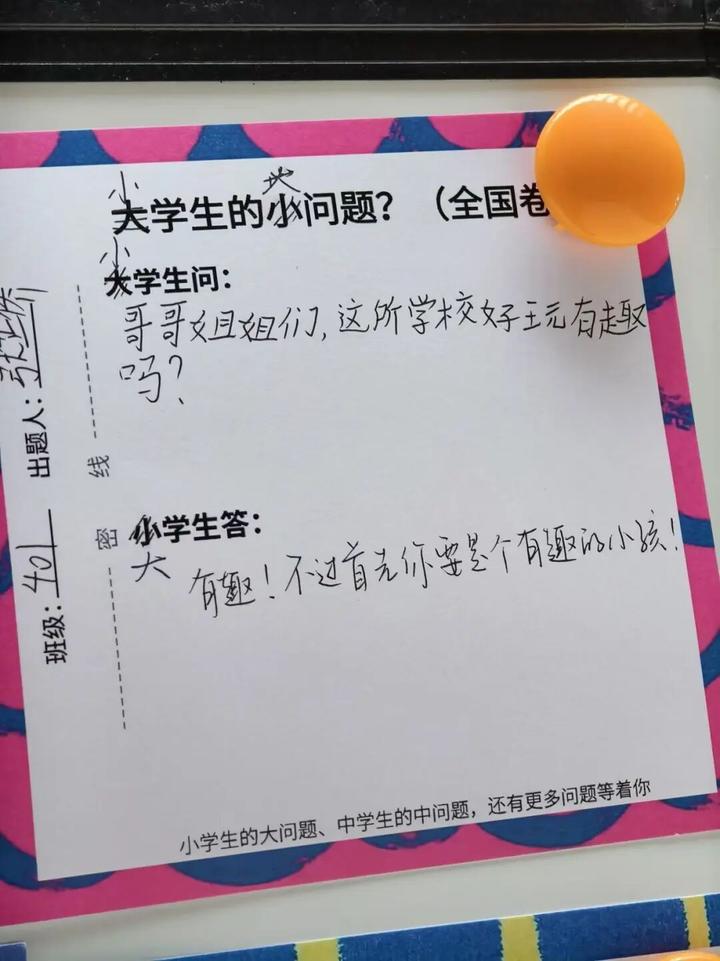 小 大
大学生的小问题？（全国卷
小
大学生问：
哥哥姐姐们，这所学校好玩有趣
吗？
小学生答：
大
有趣！不过首先你要是个有趣的小孩！
班级：401 出题人：
密 线
小学生的大问题、中学生的中问题，还有更多问题等着你